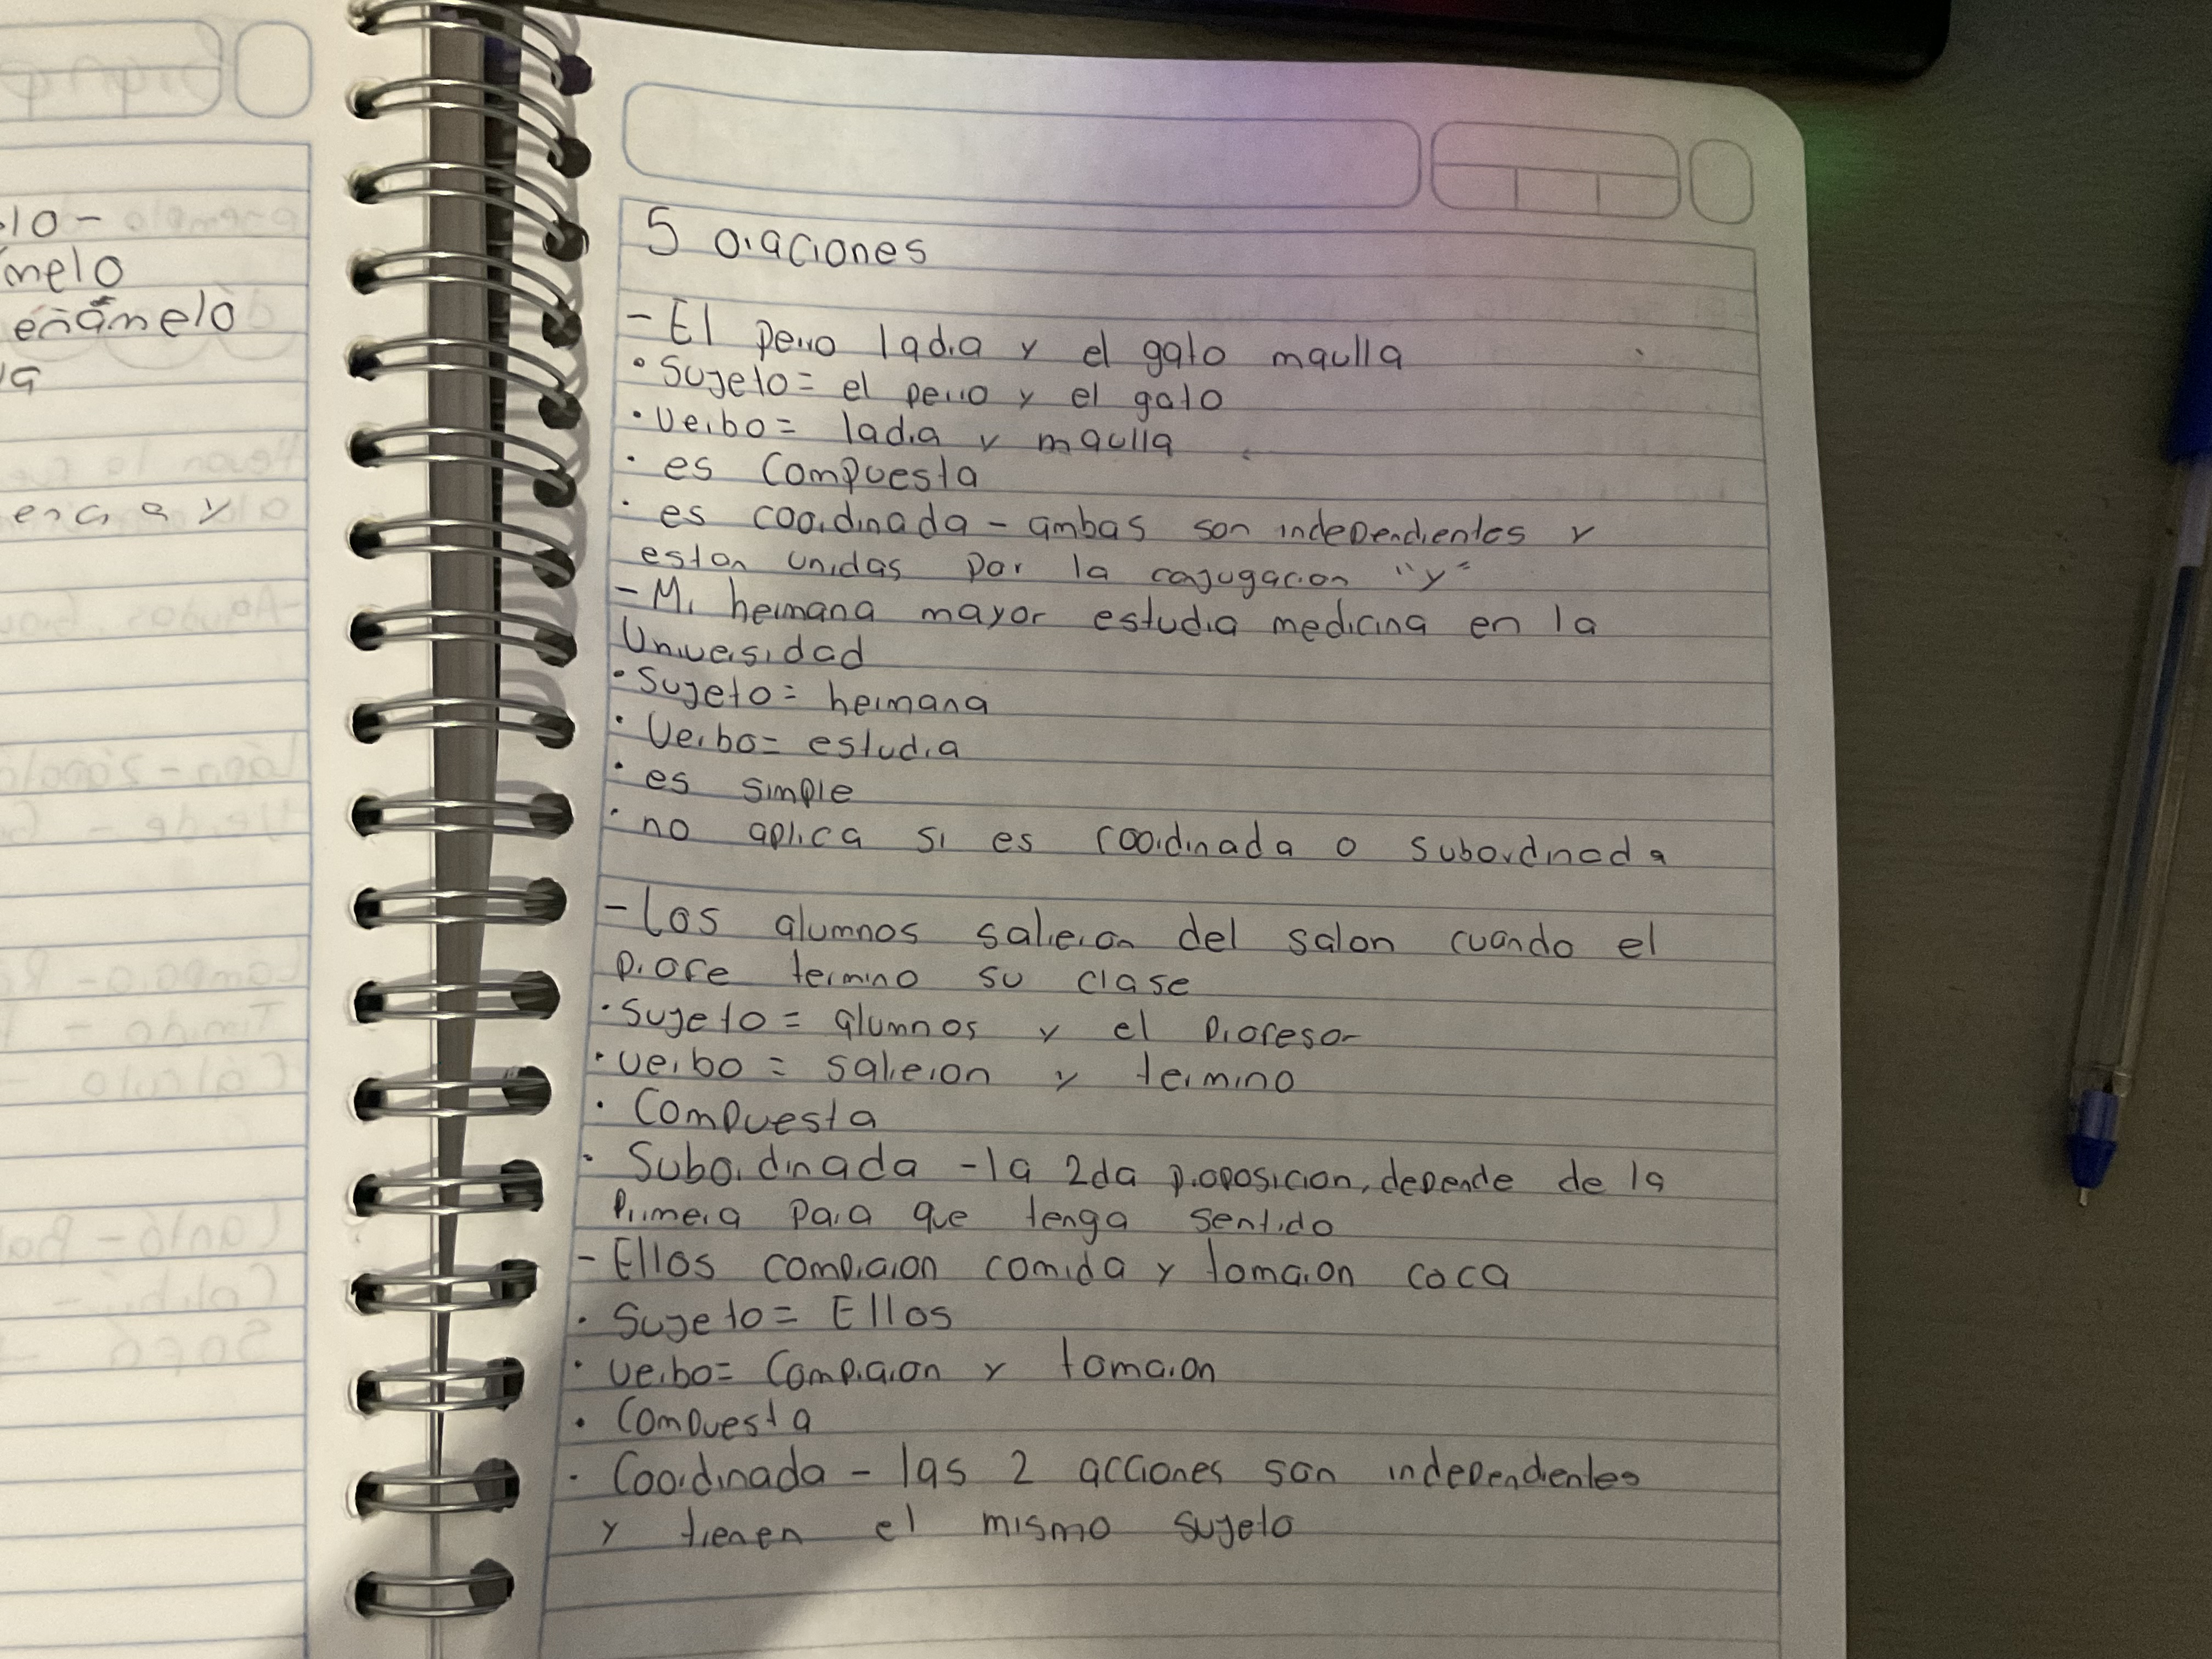 lo-
melo
eñámelo
encia y
5 oraciones
- El perro ladra y el gato maulla
• Sujeto = el perro y el gato
• Verbo = ladra y maulla
• es compuesta
• es coordinada - ambas son independientes y
estan unidas por la cojugacion "y"
- Mi hermana mayor estudia medicina en la
Universidad
• Sujeto = hermana
• Verbo = estudia
• es simple
• no aplica si es coordinada o subordinada
- Los alumnos salieron del salon cuando el
profe termino su clase
• Sujeto = alumnos y el profesor
• verbo = salieron y termino
• Compuesta
• Subordinada - la 2da proposicion, depende de la
primera para que tenga sentido
- Ellos compraron comida y tomaron coca
• Sujeto = Ellos
• verbo = Compraron y tomaron
• Compuesta
• Coordinada - las 2 acciones son independientes
y tienen el mismo sujeto